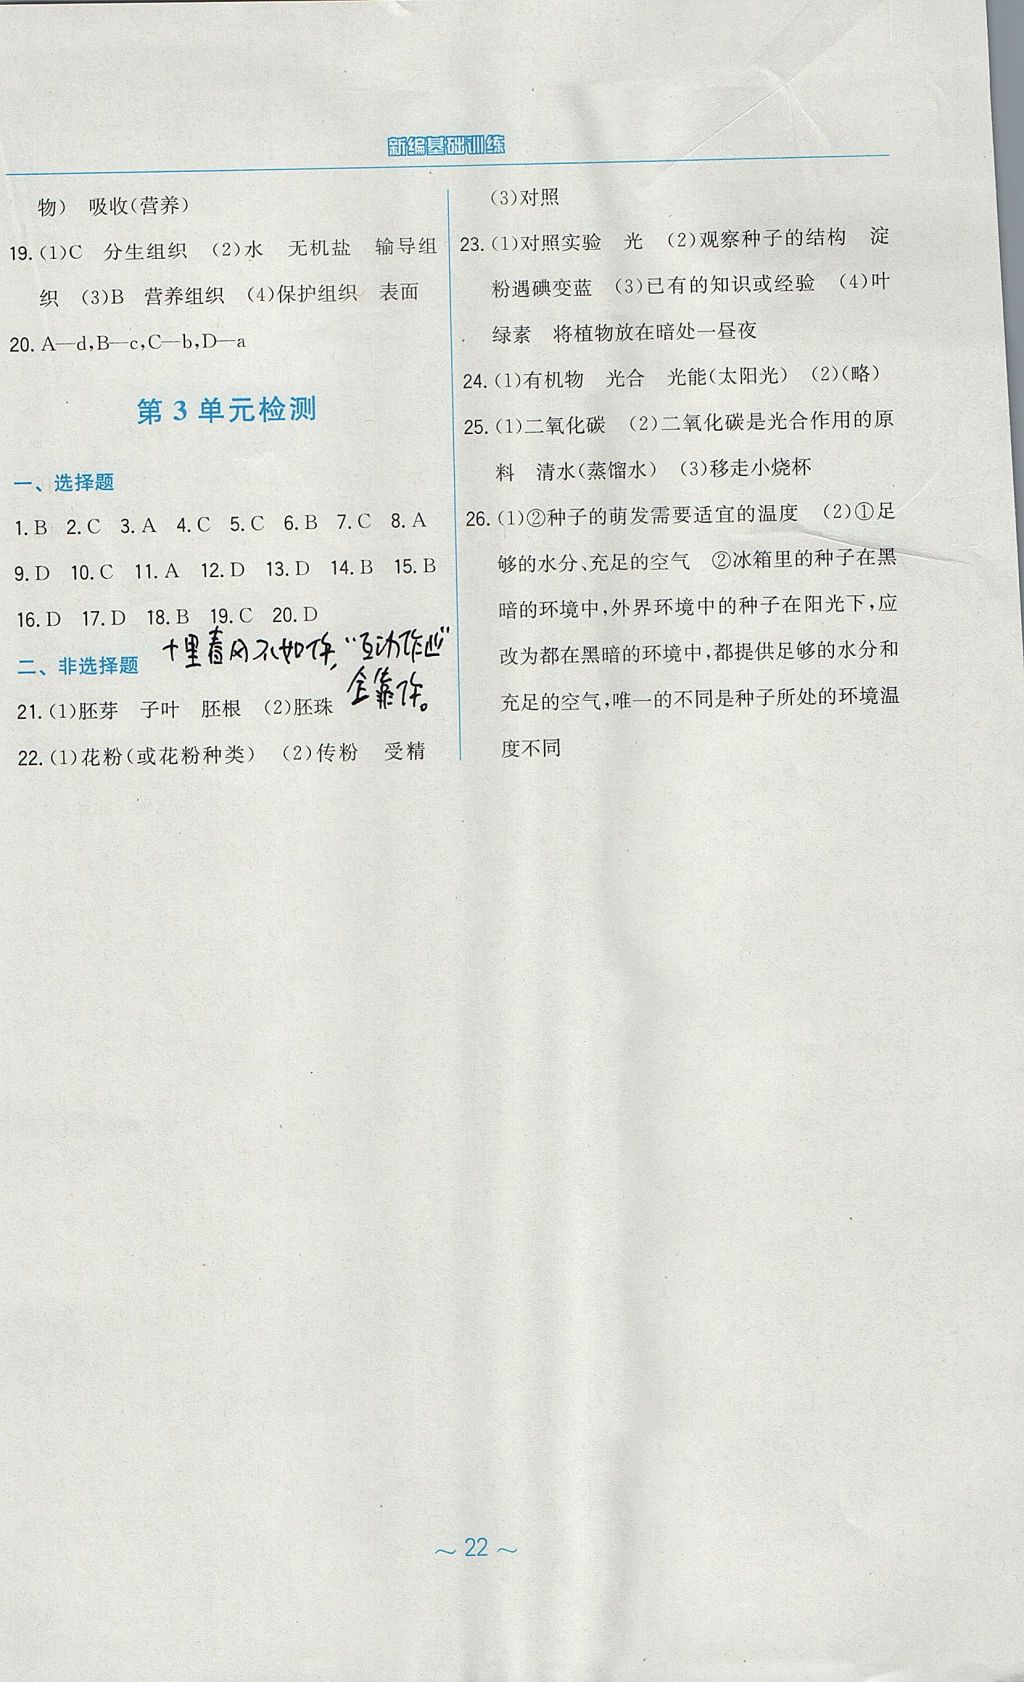 新编基础训练
物) 吸收(营养)
19. (1)C 分生组织 (2)水 无机盐 输导组
织 (3)B 营养组织 (4)保护组织 表面
20. A—d,B—c,C—b,D—a
第 3 单元检测
一、选择题
1. B 2. C 3. A 4. C 5. C 6. B 7. C 8. A
9. D 10. C 11. A 12. D 13. D 14. B 15. B
16. D 17. D 18. B 19. C 20. D
十里春风不如你,“互动作业”
全靠你。
二、非选择题
21. (1)胚芽 子叶 胚根 (2)胚珠
22. (1)花粉(或花粉种类) (2)传粉 受精
(3)对照
23. (1)对照实验 光 (2)观察种子的结构 淀
粉遇碘变蓝 (3)已有的知识或经验 (4)叶
绿素 将植物放在暗处一昼夜
24. (1)有机物 光合 光能(太阳光) (2)(略)
25. (1)二氧化碳 (2)二氧化碳是光合作用的原
料 清水(蒸馏水) (3)移走小烧杯
26. (1)②种子的萌发需要适宜的温度 (2)①足
够的水分、充足的空气 ②冰箱里的种子在黑
暗的环境中,外界环境中的种子在阳光下,应
改为都在黑暗的环境中,都提供足够的水分和
充足的空气,唯一的不同是种子所处的环境温
度不同
~ 22 ~